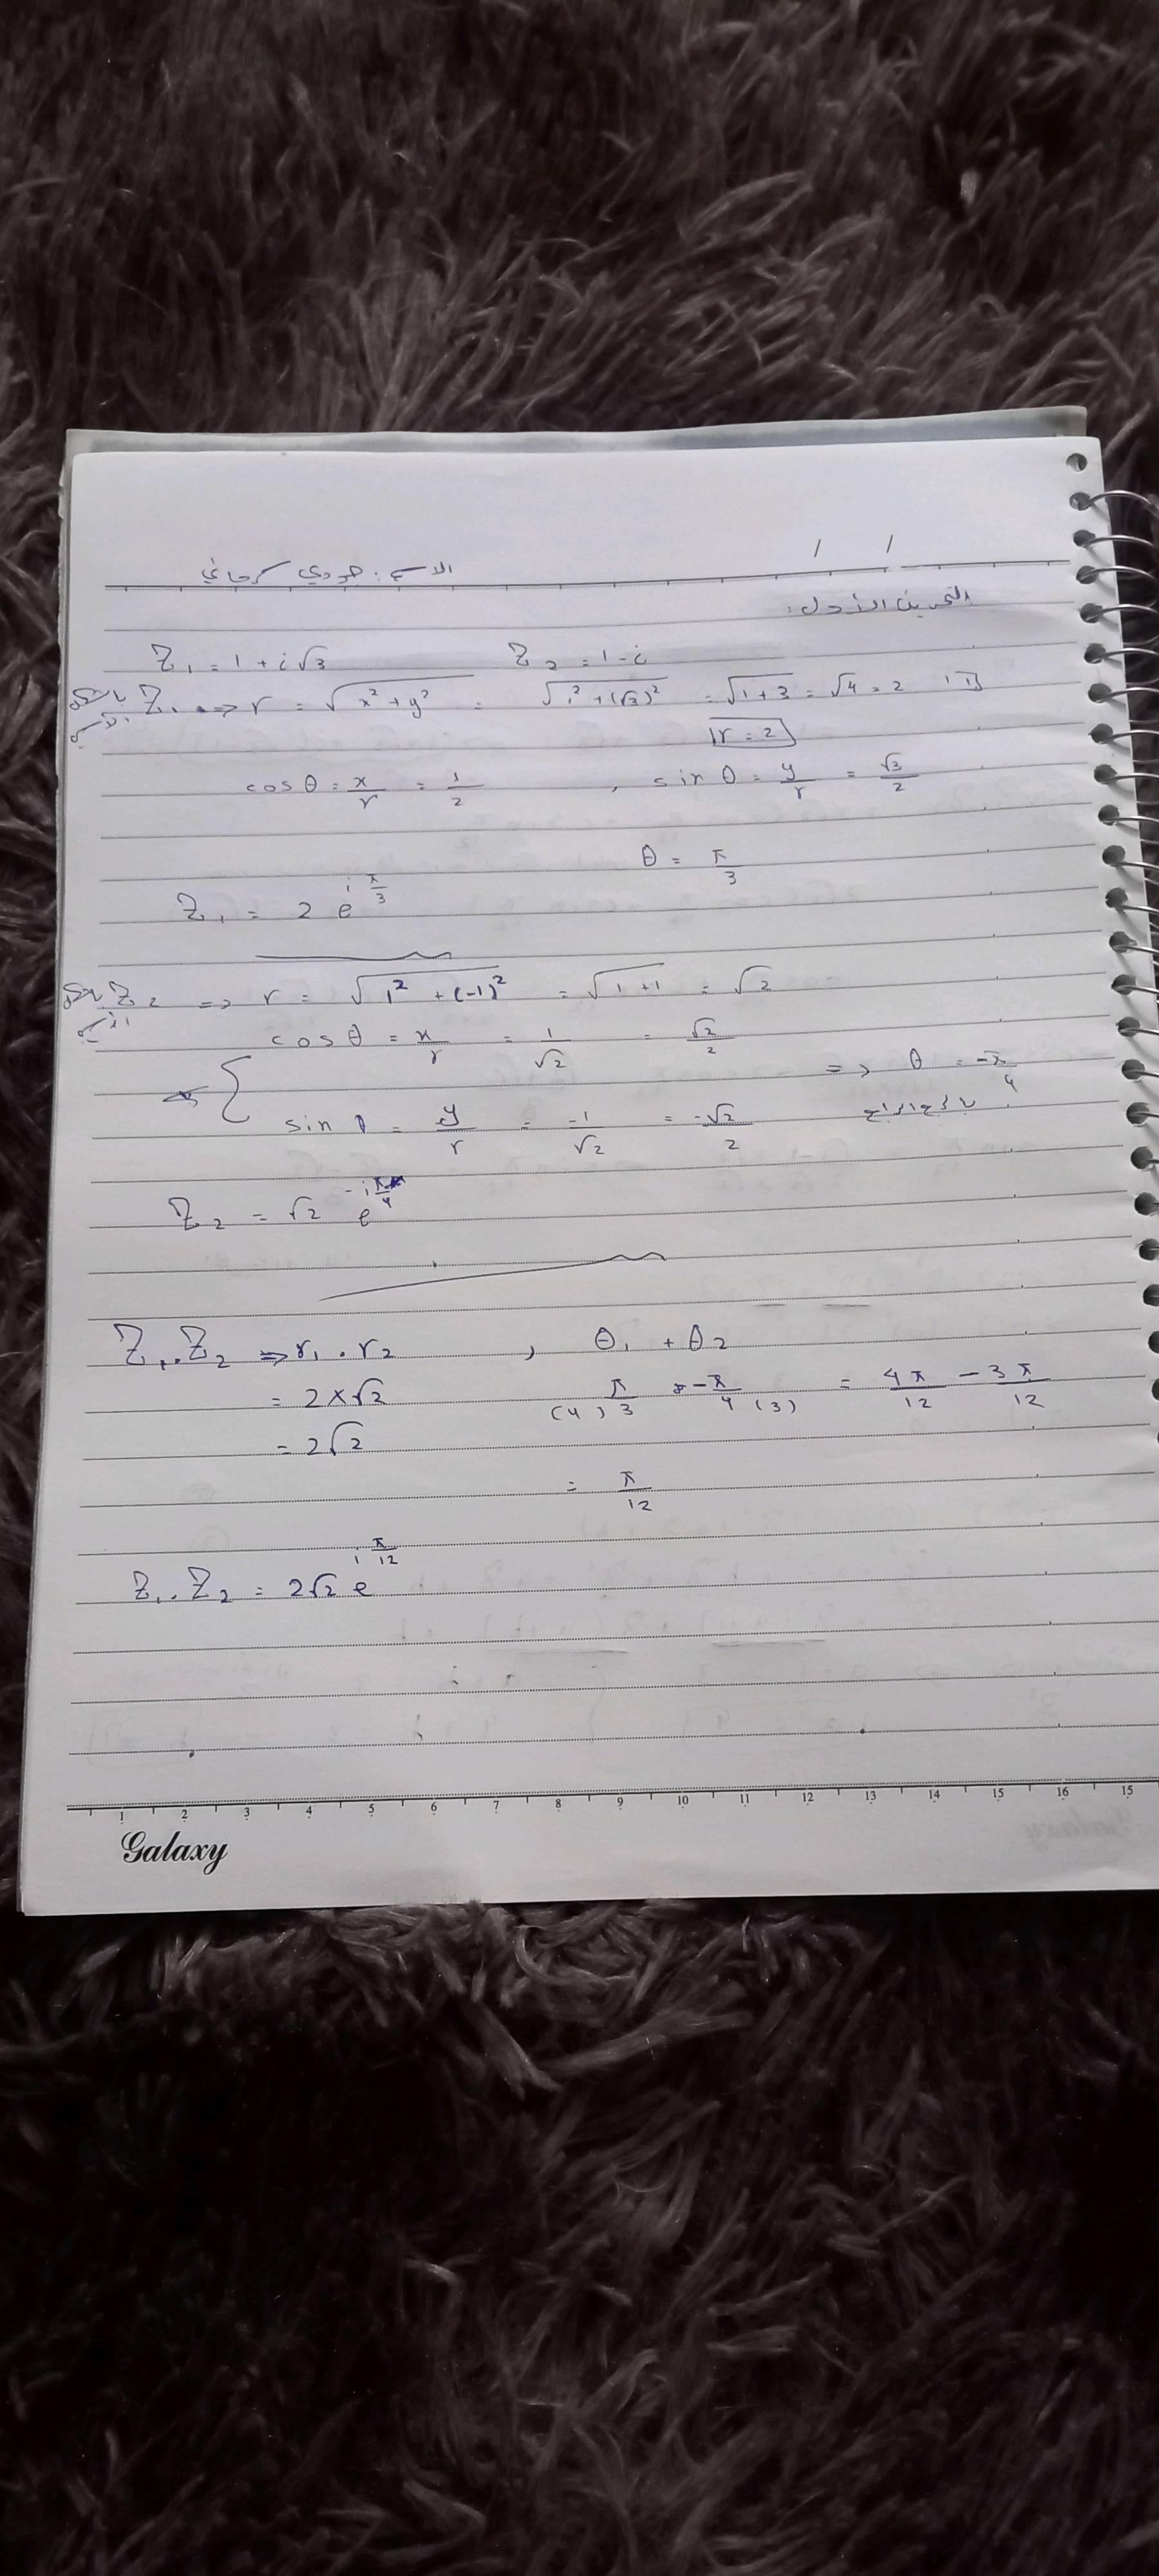 الاسم: جودي كرماني
/ /
التمرين الأول:
Z₁ = 1 + i√3 Z₂ = 1 - i
1] بالشكل الأسي Z₁ => r = √(x² + y²) = √(1² + (√3)²) = √(1 + 3) = √4 = 2
r = 2
cos θ = x/r = 1/2 , sin θ = y/r = √3/2
θ = π/3
Z₁ = 2 e^(i π/3)
الشكل الأسي Z₂ => r = √(1² + (-1)²) = √(1 + 1) = √2
cos θ = x/r = 1/√2 = √2/2
=> θ = -π/4
sin θ = y/r = -1/√2 = -√2/2 بالربع الرابع
Z₂ = √2 e^(-i π/4)
Z₁.Z₂ => r₁ . r₂ , θ₁ + θ₂
= 2 × √2 (4) π/3 + -π/4 (3) = 4π/12 - 3π/12
= 2√2
= π/12
Z₁.Z₂ = 2√2 e^(i π/12)
1 2 3 4 5 6 7 8 9 10 11 12 13 14 15 16 15
Galaxy